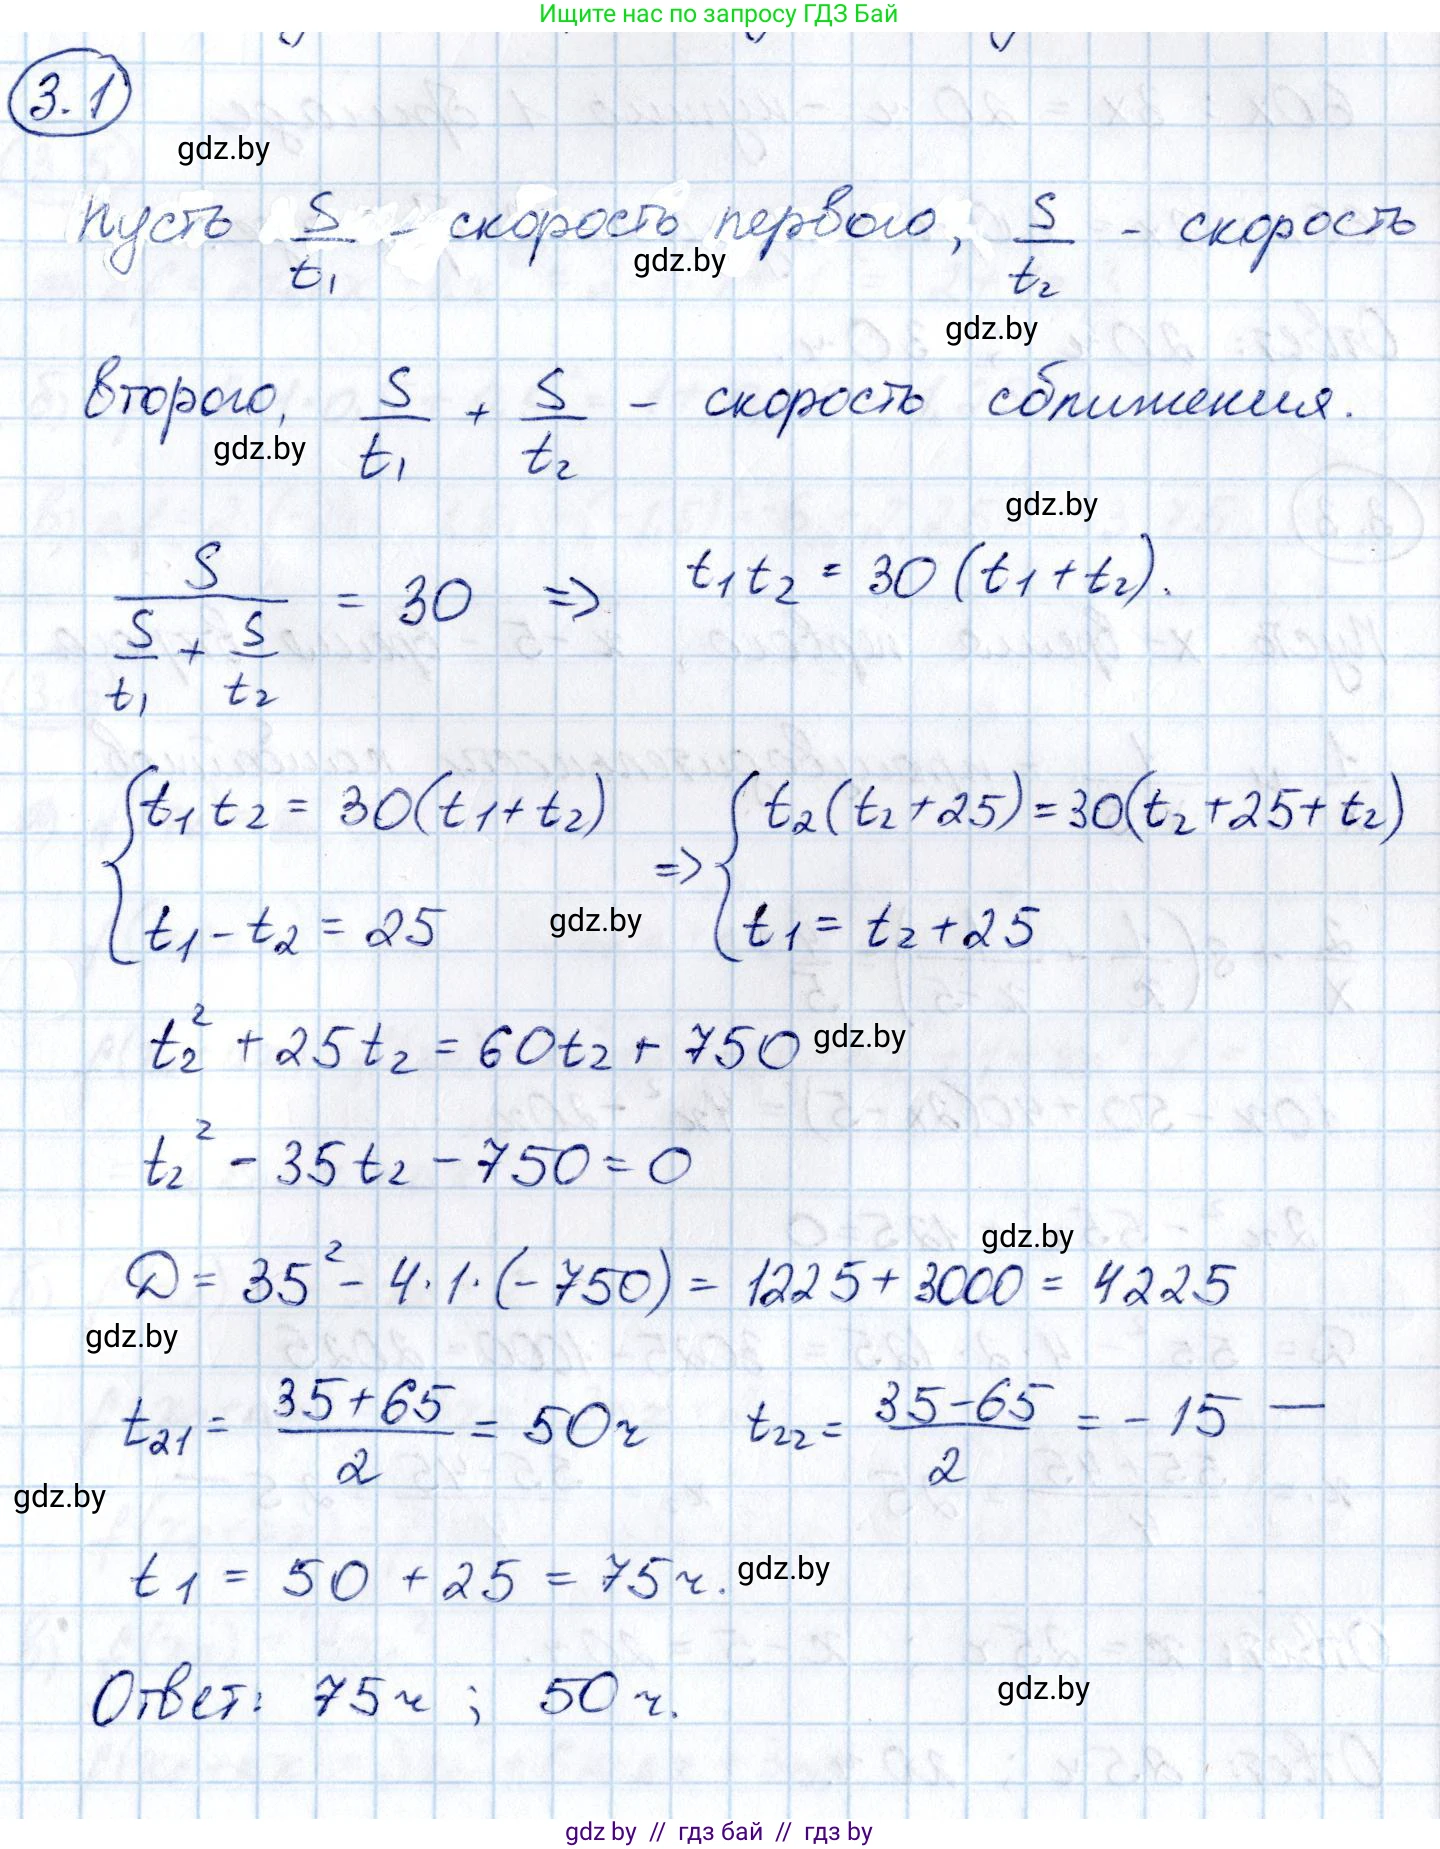 Ищите нас по запросу ГДЗ Бай
3.1
gdz.by
Пусть S/t₁ - скорость первого, S/t₂ - скорость
gdz.by
gdz.by
второго, S/t₁ + S/t₂ - скорость сближения.
gdz.by
gdz.by
S/(S/t₁ + S/t₂) = 30 => t₁t₂ = 30(t₁+t₂).
{t₁t₂ = 30(t₁+t₂) => {t₂(t₂+25)=30(t₂+25+t₂)
t₁-t₂ = 25 gdz.by t₁ = t₂+25
t₂² + 25t₂ = 60t₂ + 750 gdz.by
t₂² - 35t₂ - 750 = 0
gdz.by
D = 35² - 4·1·(-750) = 1225+3000 = 4225
gdz.by
t₂₁ = (35+65)/2 = 50ч t₂₂ = (35-65)/2 = -15 —
gdz.by
t₁ = 50 + 25 = 75ч. gdz.by
Ответ: 75ч; 50ч.
gdz.by
gdz by // гдз бай // гдз by